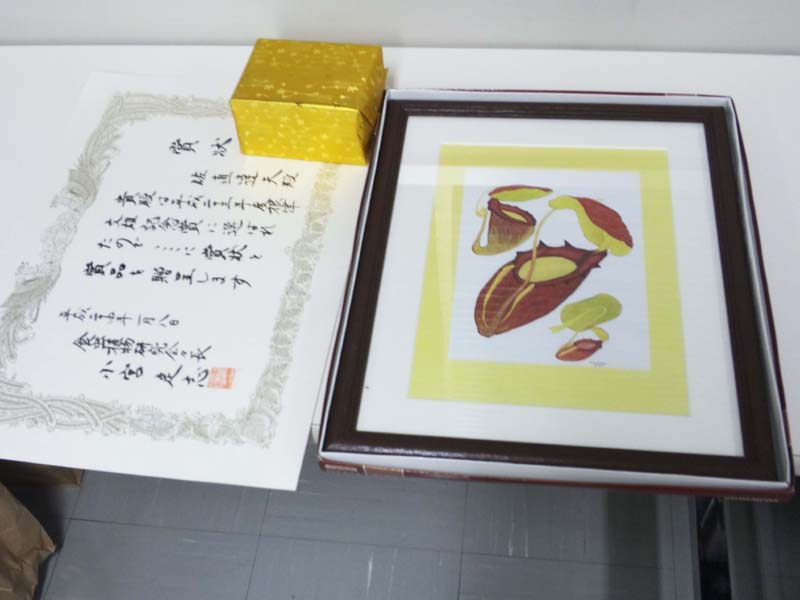 賞状
佐直達夫殿
貴殿は平成二十三年度根津
雄記念賞に選ばれ
たのでここに賞状と
賞品を贈呈します
平成二十四年一月八日
食虫植物研究会々長
小宮定志